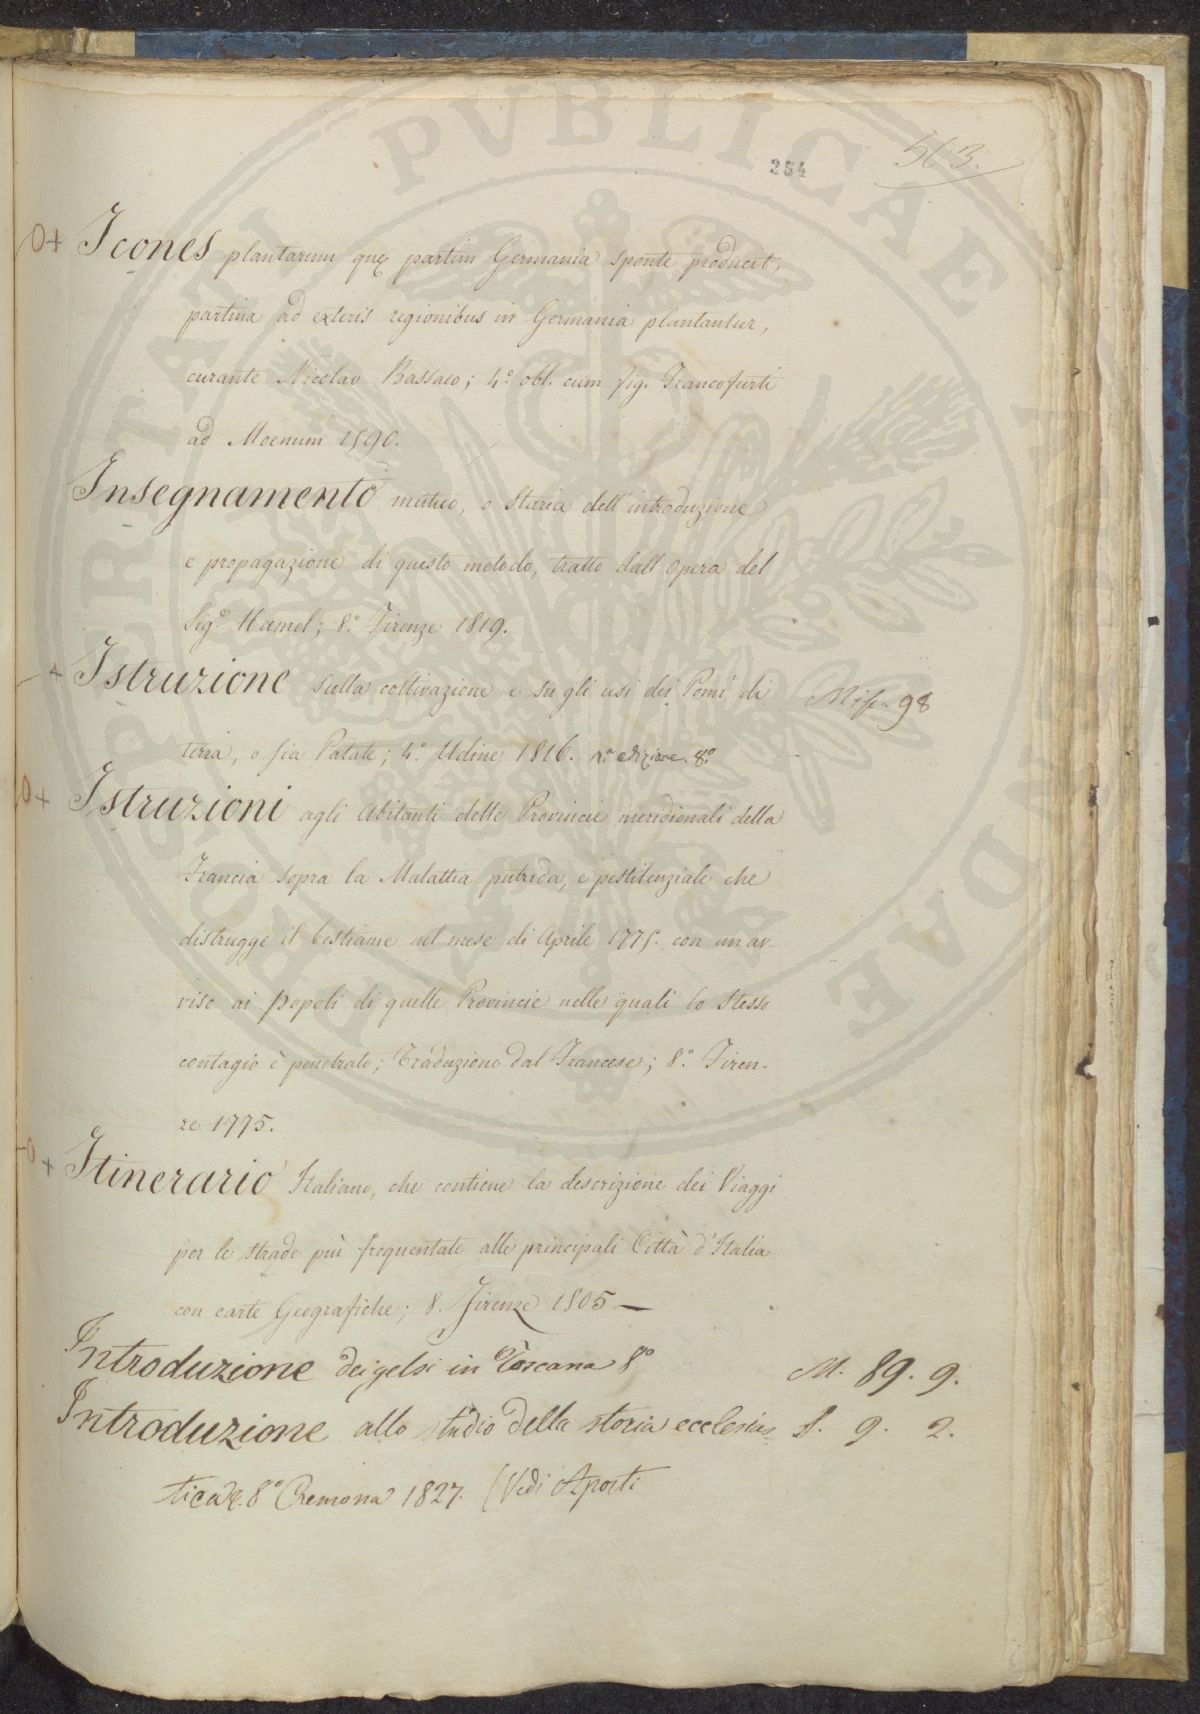 254
503.
O+ Icones plantarum quę partim Germania sponte producit,
partim ad exteris regionibus in Germania plantantur,
curante Nicolao Bassaeo; 4.° obl. cum fig. Francofurti
ad Moenum 1590.
Insegnamento mutuo, o Storia dell'introduzione
e propagazione di questo metodo, tratto dall'Opera del
Sig.e Hamel; 8.° Firenze 1819.
+ Istruzione sulla coltivazione e su gli usi dei Pomi di Misc. 98
terra, o sia Patate; 4.° Udine 1816. 2.a edizione. 8.°
O+ Istruzioni agli Abitanti delle Provincie meridionali della
Francia sopra la Malattia putrida, e pestilenziale che
distrugge il bestiame nel mese di Aprile 1775. con un av-
viso ai popoli di quelle Provincie nelle quali lo stesso
contagio è penetrato; Traduzione dal Francese; 8.° Firen-
ze 1775.
O+ Itinerario Italiano, che contiene la descrizione dei Viaggi
per le strade più frequentate alle principali Città d'Italia
con carte Geografiche; 8. Firenze 1805 —
Introduzione dei gelsi in Toscana 8° M. 89. 9.
Introduzione allo studio della storia ecclesias= S. 9. 2.
tica 8° Cremona 1827. (Vedi Aporti
PROSPERITATI PVBLICAE AVGENDAE